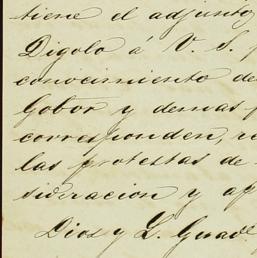 tiene el adjunto
Digolo á V. S. p
conocimiento de
Gobor y demas p
corresponden, re
las protestas de
sideracion y ap
Dios y L. Guad.